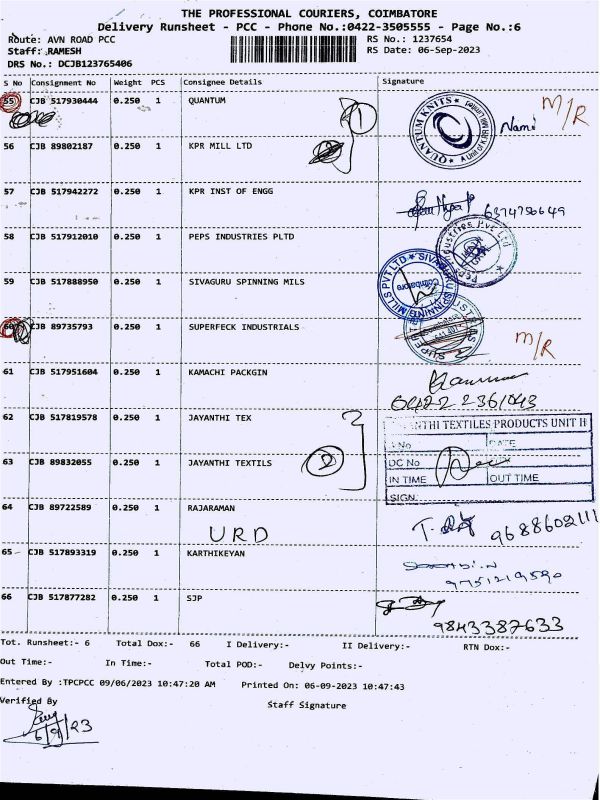 THE PROFESSIONAL COURIERS, COIMBATORE
Delivery Runsheet - PCC - Phone No.:0422-3505555 - Page No.:6
Route: AVN ROAD PCC RS No.: 1237654
Staff: RAMESH RS Date: 06-Sep-2023
DRS No.: DCJB123765406
S No Consignment No Weight PCS Consignee Details Signature
55 CJB 517930444 0.250 1 QUANTUM
QUANTUM KNITS M/R
56 CJB 89802187 0.250 1 KPR MILL LTD
57 CJB 517942272 0.250 1 KPR INST OF ENGG
6374756649
58 CJB 517912010 0.250 1 PEPS INDUSTRIES PLTD
59 CJB 517888950 0.250 1 SIVAGURU SPINNING MILS
SIVAGURU SPINNING MILLS PVT LTD Coimbatore
60 CJB 89735793 0.250 1 SUPERFECK INDUSTRIALS
M/R
61 CJB 517951604 0.250 1 KAMACHI PACKGIN
0422 2361043
62 CJB 517819578 0.250 1 JAYANTHI TEX
ANTHI TEXTILES PRODUCTS UNIT II
No DATE
63 CJB 89832055 0.250 1 JAYANTHI TEXTILS 2
DC No
IN TIME OUT TIME
SIGN.
64 CJB 89722589 0.250 1 RAJARAMAN
URD 9688602111
65 CJB 517893319 0.250 1 KARTHIKEYAN
9751219590
66 CJB 517877282 0.250 1 SJP
9843387633
Tot. Runsheet:- 6 Total Dox:- 66 I Delivery:- II Delivery:- RTN Dox:-
Out Time:- In Time:- Total POD:- Delvy Points:-
Entered By :TPCPCC 09/06/2023 10:47:20 AM Printed On: 06-09-2023 10:47:43
Verified By Staff Signature
6/9/23